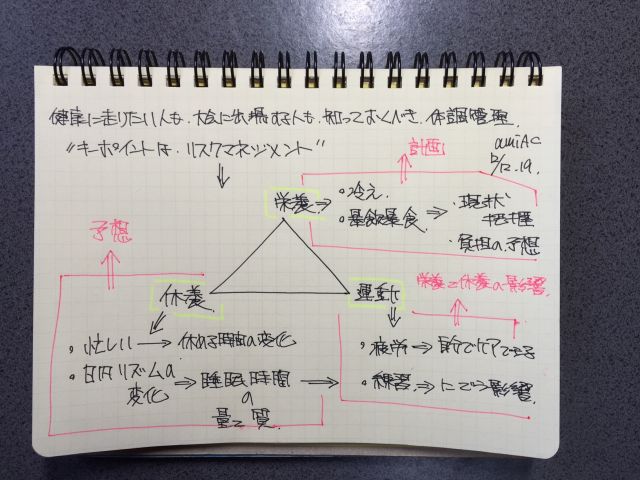 健康に走りたい人も、大会に出場する人も、知っておくべき、体調管理
"キーポイントは、リスクマネジメント"
計画
12/12.19.
栄養 → ・冷え
・暴飲暴食 → ・現状把握
・負担の予想
予想
栄養と休養の影響
休養
運動
・忙しい → 休める時間の変化
・日内リズムの変化 → 睡眠時間の量と質
・疲労 → 自分でケアできる
・練習 → にどう影響